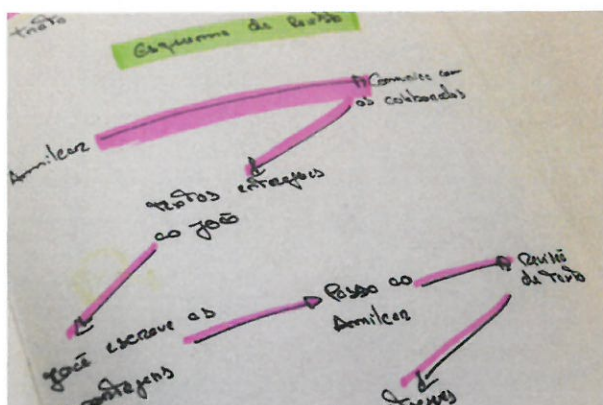 texto
Esquema de Revisão
Comunica com
os colaborados
Amilcar
textos entregues
ao João
João escreve as
Passo ao
Amilcar
Revisão
de Texto